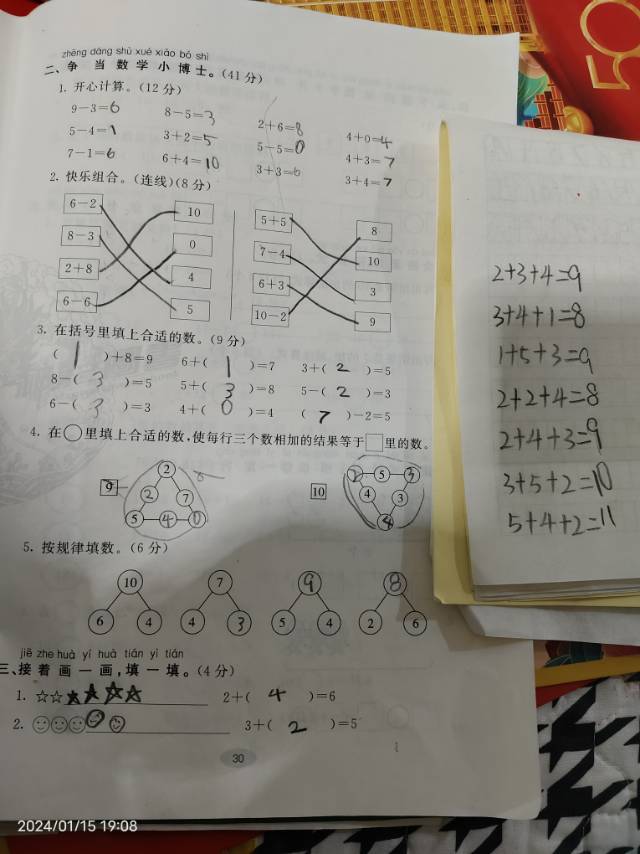 zhēng dāng shù xué xiǎo bó shì
二、争当数学小博士。(41分)
1. 开心计算。(12分)
9-3=6 8-5=3 2+6=8 4+0=4
5-4=1 3+2=5 5-5=0 4+3=7
7-1=6 6+4=10 3+3=6 3+4=7
2. 快乐组合。(连线)(8分)
6-2 10 5+5 8
8-3 0 7-4 10
2+8 4 6+3 3
6-6 5 10-2 9
3. 在括号里填上合适的数。(9分)
( 1 )+8=9 6+( 1 )=7 3+( 2 )=5
8-( 3 )=5 5+( 3 )=8 5-( 2 )=3
6-( 3 )=3 4+( 0 )=4 ( 7 )-2=5
4. 在○里填上合适的数,使每行三个数相加的结果等于□里的数。
2 2 5 3
9 2 7 10 4 3
5 4 0
5. 按规律填数。(6分)
10 7 9 8
6 4 4 3 5 4 2 6
jiē zhe huà yí huà tián yì tián
三、接着画一画,填一填。(4分)
1. ☆☆★★★★ 2+( 4 )=6
2. 3+( 2 )=5
30
2+3+4=9
3+4+1=8
1+5+3=9
2+2+4=8
2+4+3=9
3+5+2=10
5+4+2=11
50
2024/01/15 19:08